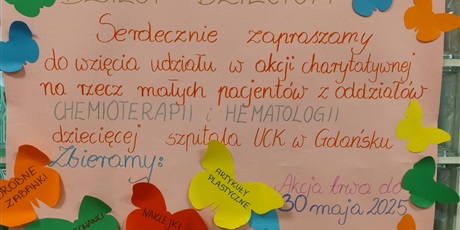 Serdecznie zapraszamy
do wzięcia udziału w akcji charytatywnej
na rzecz małych pacjentów z oddziałów
CHEMIOTERAPII i HEMATOLOGII
dziecięcej szpitala UCK w Gdańsku
Zbieramy:
ZABAWKI
NAKLEJKI
ARTYKUŁY
PLASTYCZNE
Akcja trwa do
30 maja 2025